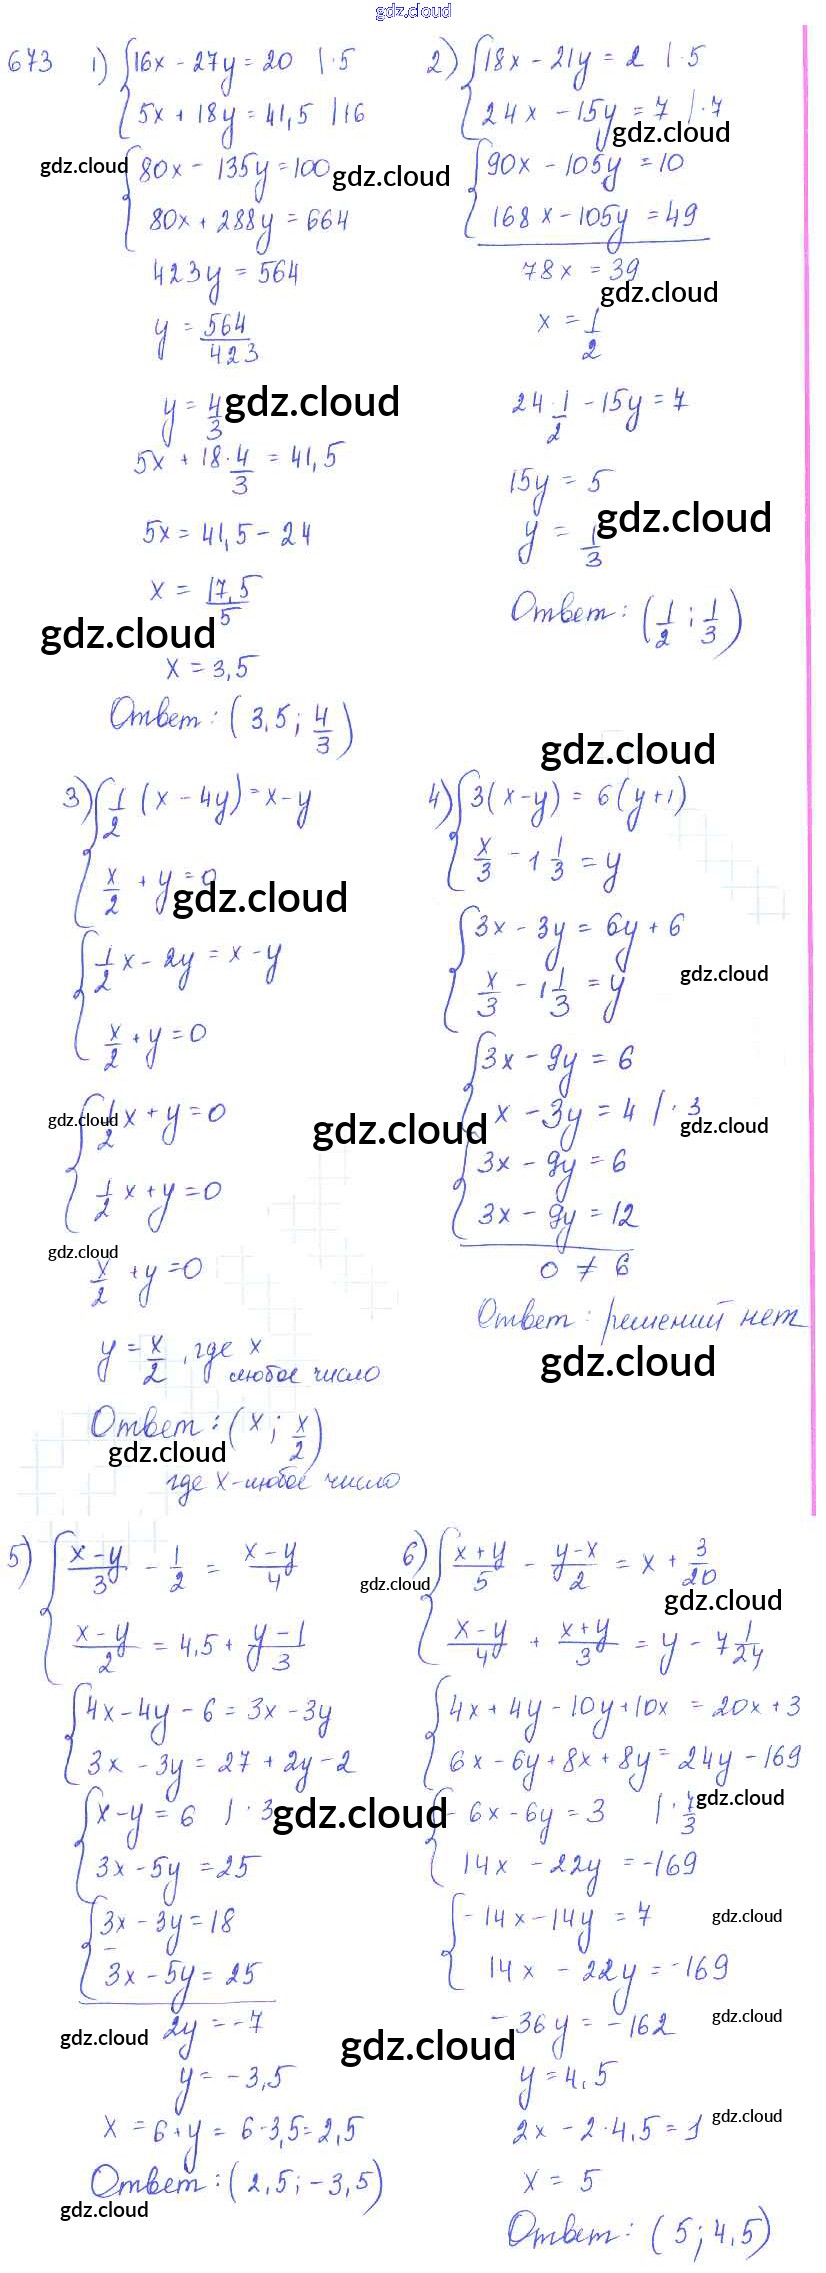 gdz.cloud
673
1) {16x - 27y = 20 | · 5
5x + 18y = 41,5 | 16
gdz.cloud
{80x - 135y = 100
gdz.cloud
80x + 288y = 664
423y = 564
y = 564/423
y = 4/3
gdz.cloud
5x + 18 · 4/3 = 41,5
5x = 41,5 - 24
x = 17,5/5
gdz.cloud
x = 3,5
Ответ: (3,5; 4/3)
2) {18x - 21y = 2 | · 5
24x - 15y = 7 | · 7
gdz.cloud
{90x - 105y = 10
168x - 105y = 49
78x = 39
gdz.cloud
x = 1/2
24 · 1/2 - 15y = 7
15y = 5
gdz.cloud
y = 1/3
Ответ: (1/2; 1/3)
gdz.cloud
3) {1/2 (x - 4y) = x - y
x/2 + y = 0
gdz.cloud
{1/2 x - 2y = x - y
x/2 + y = 0
gdz.cloud
{1/2 x + y = 0
1/2 x + y = 0
gdz.cloud
x/2 + y = 0
y = x/2, где x
любое число
Ответ: (x; x/2)
gdz.cloud
где x - любое число
4) {3(x - y) = 6(y + 1)
x/3 - 1 1/3 = y
{3x - 3y = 6y + 6
gdz.cloud
x/3 - 1 1/3 = y
{3x - 9y = 6
x - 3y = 4 | · 3
gdz.cloud
gdz.cloud
3x - 9y = 6
3x - 9y = 12
0 ≠ 6
Ответ: решений нет
gdz.cloud
5) {x-y/3 - 1/2 = x-y/4
x-y/2 = 4,5 + y-1/3
{4x - 4y - 6 = 3x - 3y
3x - 3y = 27 + 2y - 2
{x - y = 6 | · 3
gdz.cloud
3x - 5y = 25
{3x - 3y = 18
-
3x - 5y = 25
2y = -7
gdz.cloud
y = -3,5
x = 6 + y = 6 - 3,5 = 2,5
Ответ: (2,5; -3,5)
gdz.cloud
6) {x+y/5 - y-x/2 = x + 3/20
gdz.cloud
gdz.cloud
x-y/4 + x+y/3 = y - 7 1/24
{4x + 4y - 10y + 10x = 20x + 3
6x - 6y + 8x + 8y = 24y - 169
{- 6x - 6y = 3 | · 7/3
gdz.cloud
14x - 22y = -169
{- 14x - 14y = 7
gdz.cloud
14x - 22y = -169
-36y = -162
gdz.cloud
gdz.cloud
y = 4,5
2x - 2 · 4,5 = 1
gdz.cloud
x = 5
Ответ: (5; 4,5)